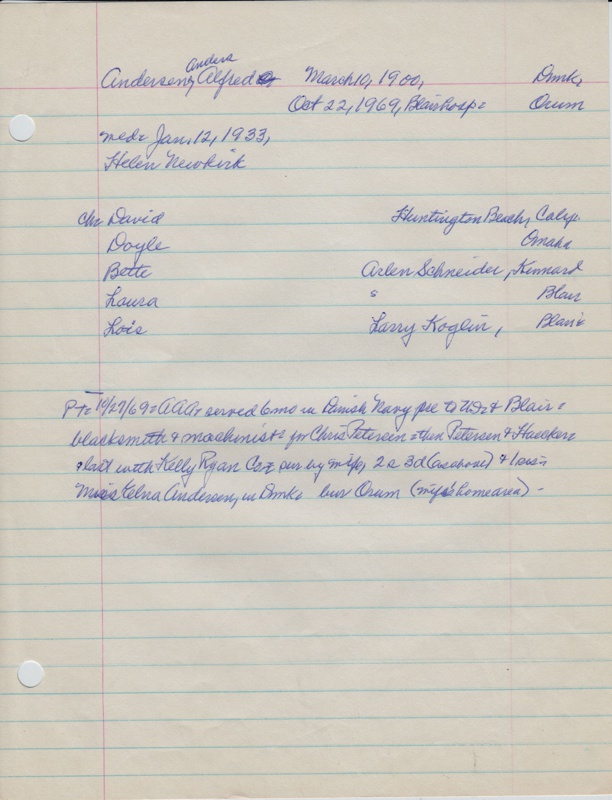 Anders
Andersen, Alfred March 10, 1900, Dmk,
Oct 22, 1969, Blair hosp= Orum
med= Jan. 12, 1933,
Helen Newkirk
ch= David Huntington Beach, Calif.
Doyle Omaha
Bette Arlen Schneider, Kennard
Laura " Blair
Lois Larry Koglin, Blair
PT= 10/27/69= AAA, served 6mo in Danish Navy pre to US= & Blair=
blacksmith & machinist= for Chris Petersen= then Petersen &
& last with Kelly Ryan Co= sur by wife, 2 s 3d (as above) & 1 sis=
Miss Telna Andersen, in Dmk= bur Orum (wife's home area) -